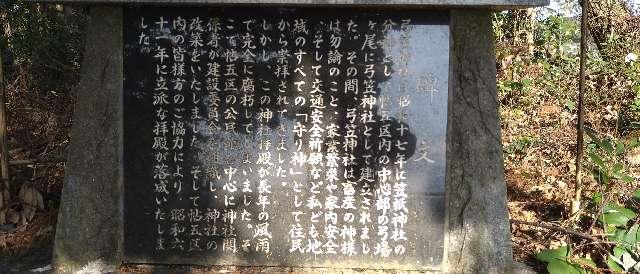 碑文
弓笠神社は昭和十七年に笠祇神社の
分神とし、他五区内の中心部の弓場
ヶ尾に弓笠神社として建立されまし
た。その間、弓笠神社は畜産の神様
は勿論のこと、家業繁栄や家内安全
、そして交通安全祈願など私ども地
域のすべての「守り神」として住民
から崇拝されてきました。
しかし、この神社拝殿が長年の風雨
で完全に腐朽してしまいました。そ
こで他五区の公民館を中心に神社関
係者が建設委員会を組織し、神社の
改築をいたしました。そして他五区
内の皆様方のご協力により、昭和六
十一年に立派な拝殿が落成いたしま
した。